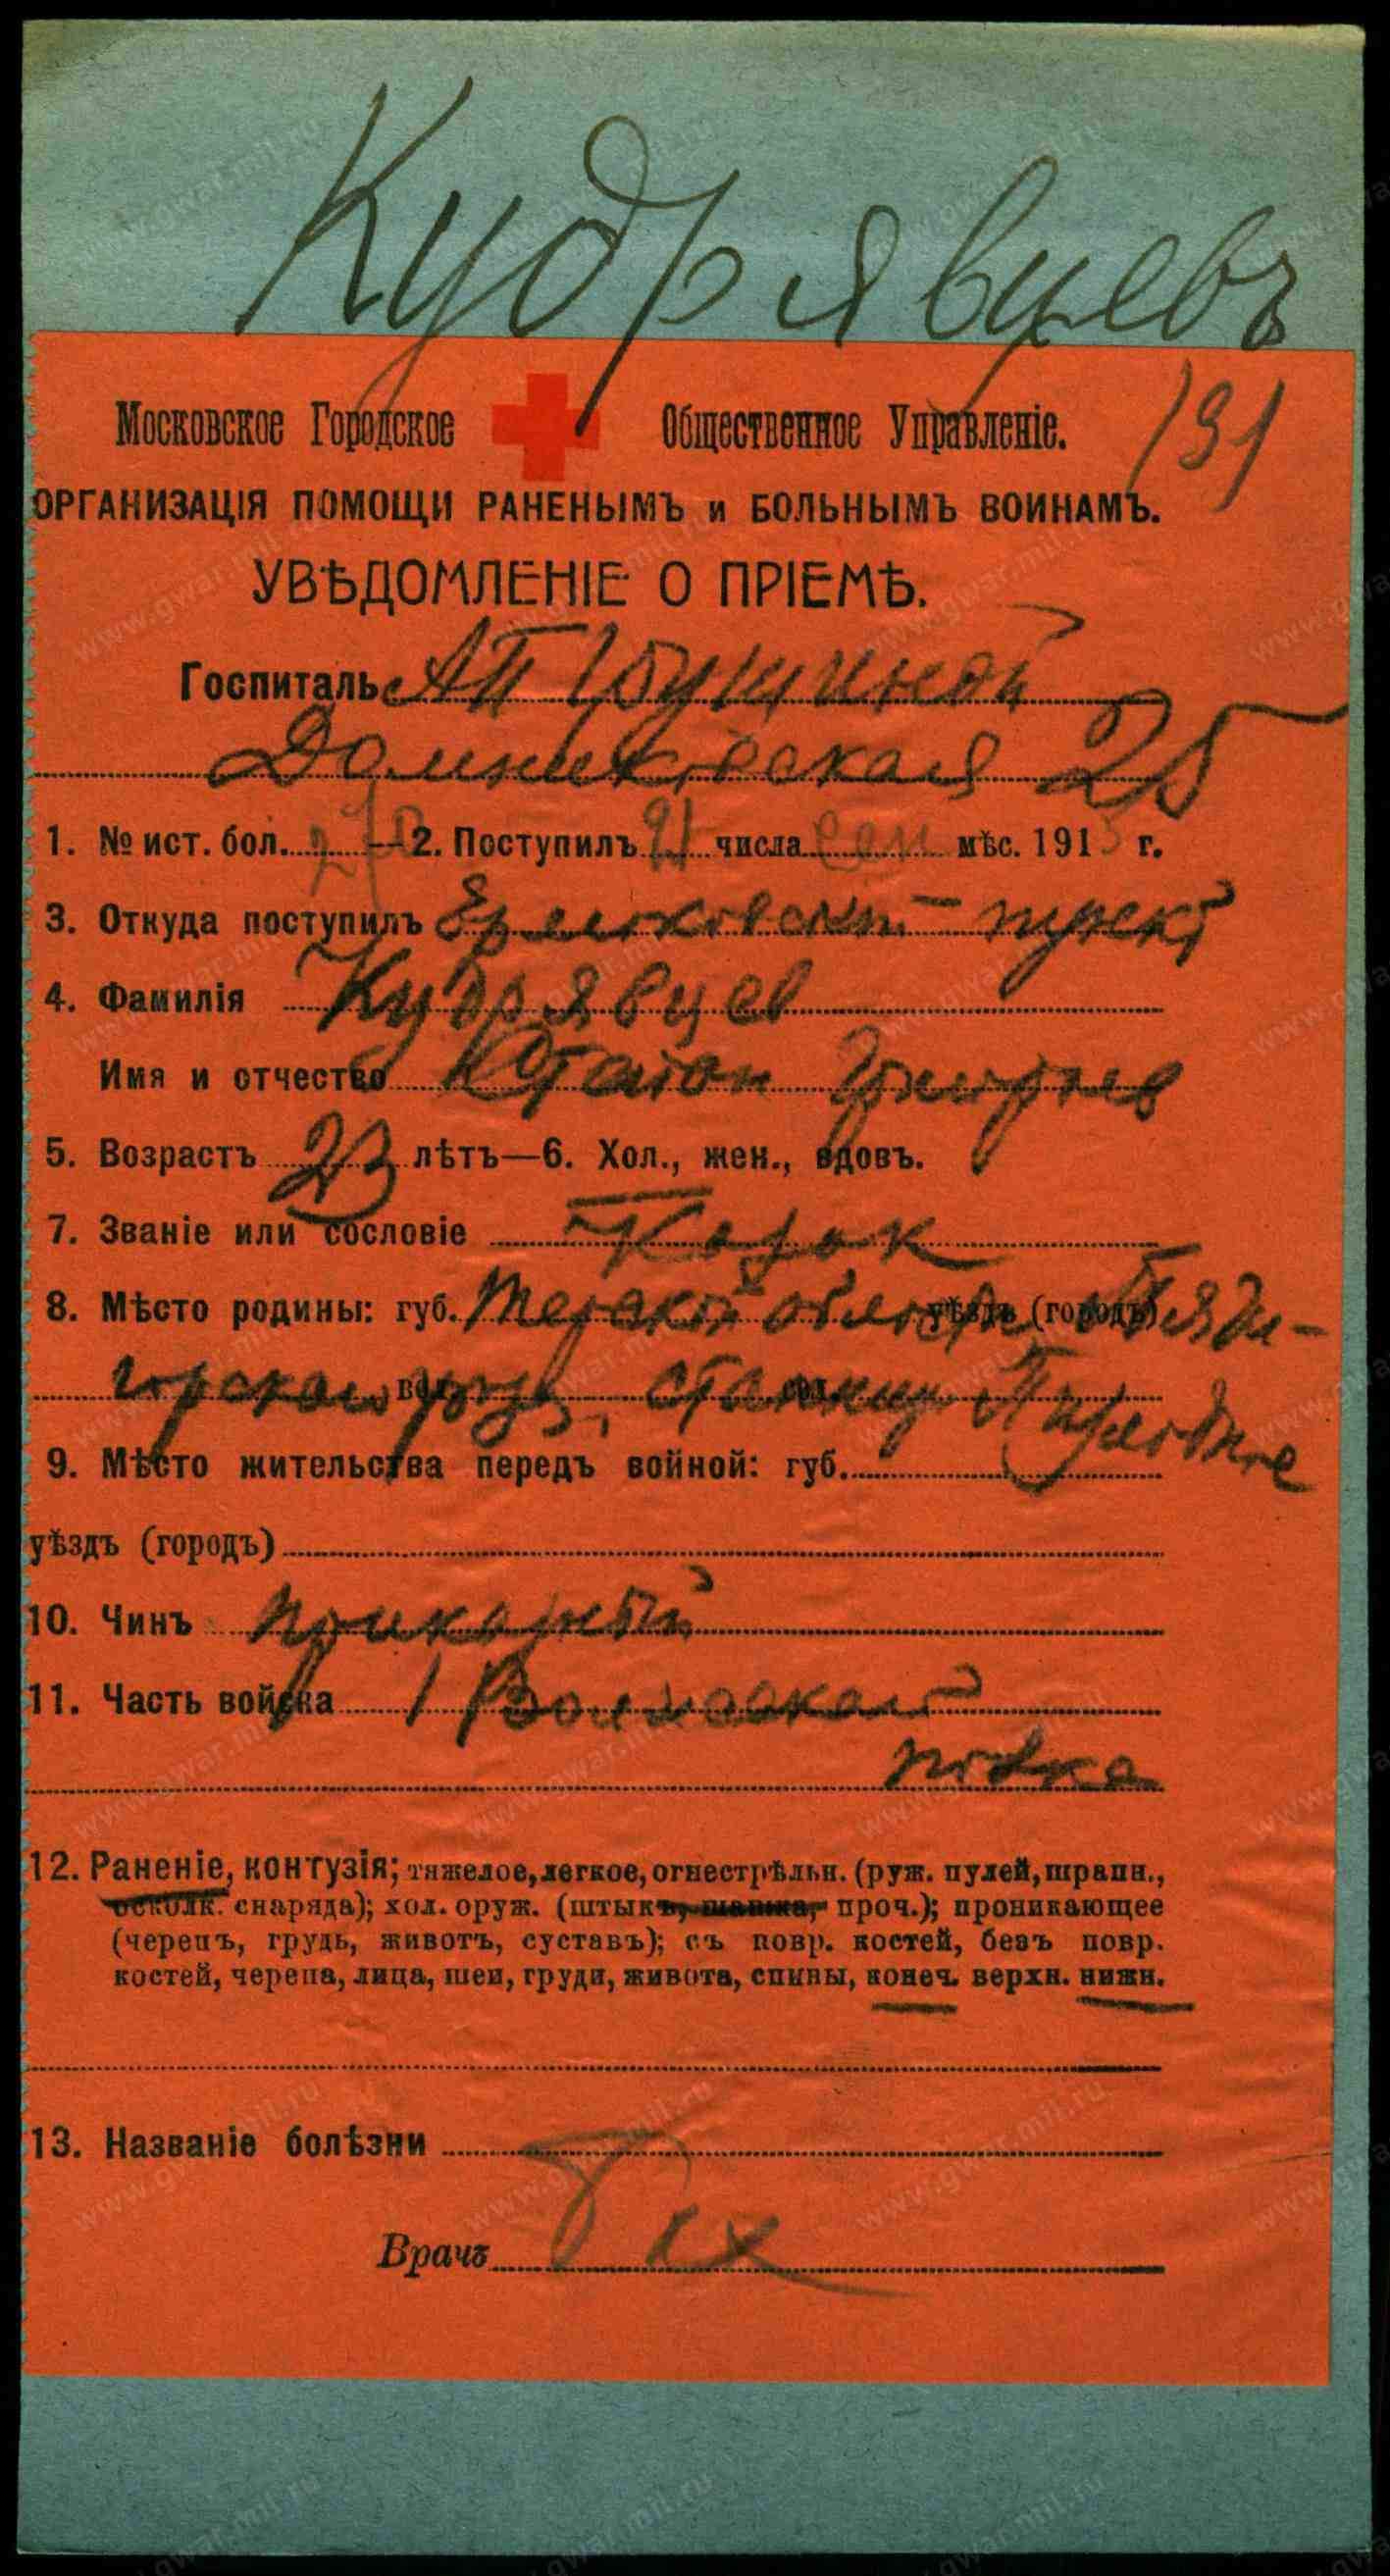 Кудрявцевъ
Московское Городское Общественное Управленіе. 191
ОРГАНИЗАЦІЯ ПОМОЩИ РАНЕНЫМЪ и БОЛЬНЫМЪ ВОИНАМЪ.
УВѢДОМЛЕНІЕ О ПРІЕМѢ.
Госпиталь
Домниковская 25
1. № ист. бол. —2. Поступилъ 21 числа сен мѣс. 1915 г.
3. Откуда поступилъ пункт
4. Фамилія Кудрявцев
Имя и отчество Григорьев
5. Возрастъ 23 лѣтъ—6. Хол., жен., вдовъ.
7. Званіе или сословіе Козак
8. Мѣсто родины: губ. Терской области уѣздъ (городъ) Пяти-
горскаго вол. сел.
9. Мѣсто жительства передъ войной: губ.
уѣздъ (городъ)
10. Чинъ приказный
11. Часть войска 1 Волгскаго
полка
12. Раненіе, контузія; тяжелое, легкое, огнестрѣльн. (руж. пулей, шрапн.,
осколк. снаряда); хол. оруж. (штыкъ, шашка, проч.); проникающее
(черепъ, грудь, животъ, суставъ); съ повр. костей, безъ повр.
костей, черепа, лица, шеи, груди, живота, спины, конеч. верхн. нижн.
13. Названіе болѣзни
Врачъ
www.gwar.mil.ru